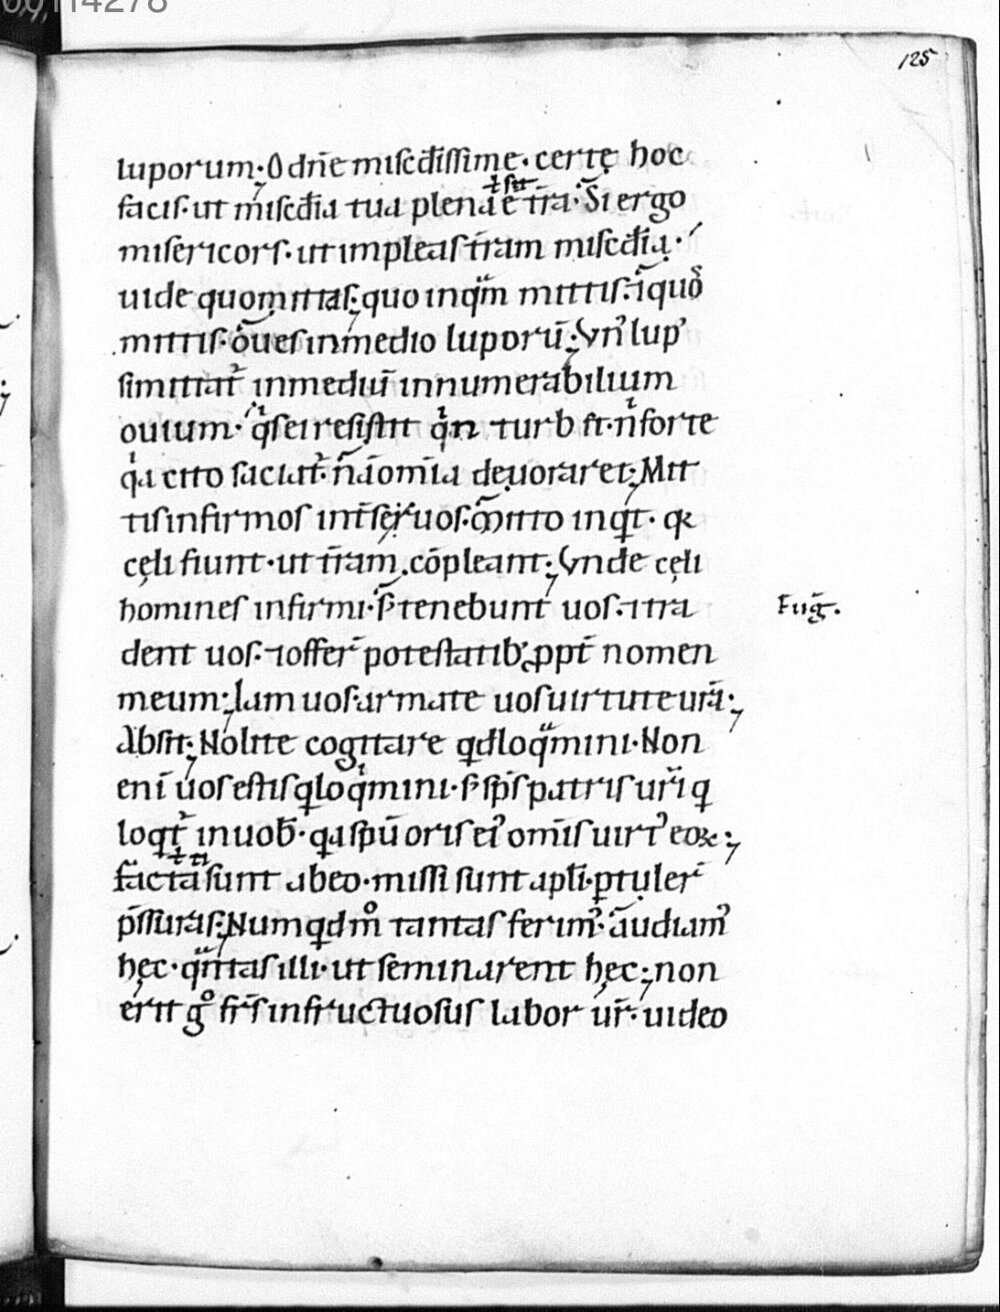 00114278
125
luporum· O dn̄e misc̄dissime· certę hoc
facis· ut mīsc̄dia tua plena ē tr̄a· Si ergo
misericors· ut impleas tr̄am misc̄dia·
uide quo mittas; quo inq̄m mittis· i quo
mittis· oues in medio luporū; Vn lup᾽
si mittat᾽ in mediū innumerabilium
ouium· q̄ sei resistit turb
cito faciat᾽ om̄ia deuoraret; Mit
tis infirmos int̄ seuos· Mitto inqt·
cęli fiunt· ut tr̄am cōpleant; Vnde cęli
homines infirmi· s̄ tenebunt uos· ⁊ tra
Fug̅.
dent uos· ⁊ offer̄ potestatib; ꝓpt̄ nomen
meum; Iam uos armate uos uirtute ur̄a;
Absit; Nolite cogitare qd loq̄mini· Non
enī uos estis q loq̄mini· s̄ sp̄s patris ur̄i q
loqt᾽ in uob̄· q̄a spū oris ei᾽ om̄is uirt᾽ eoꝝ;
facta sunt ab eo· missi sunt apl̄i· ptuler̄
p̄ssuras; Numqd m° tantas ferim᾽· audiam᾽
hęc· q̄m̄tas illi· ut seminarent hęc; non
erit g° fr̄s infructuosus labor ur̄· uideo